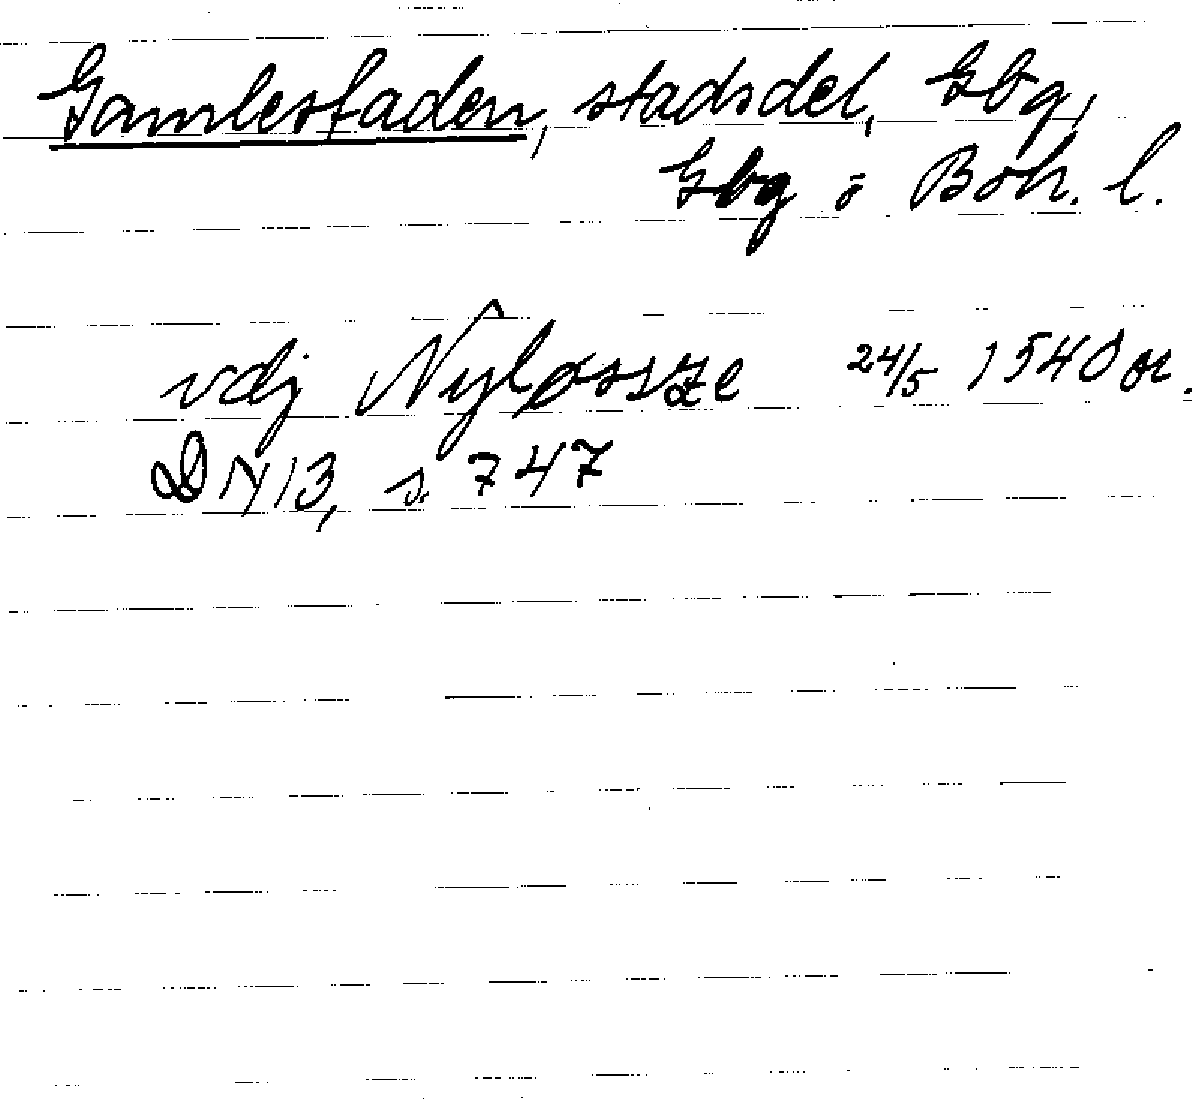 Gamlestaden, stadsdel, Gbg,
Gbg o Boh. l.
vdj Nyløssze 24/5 1540 or.
DN 13, s. 747